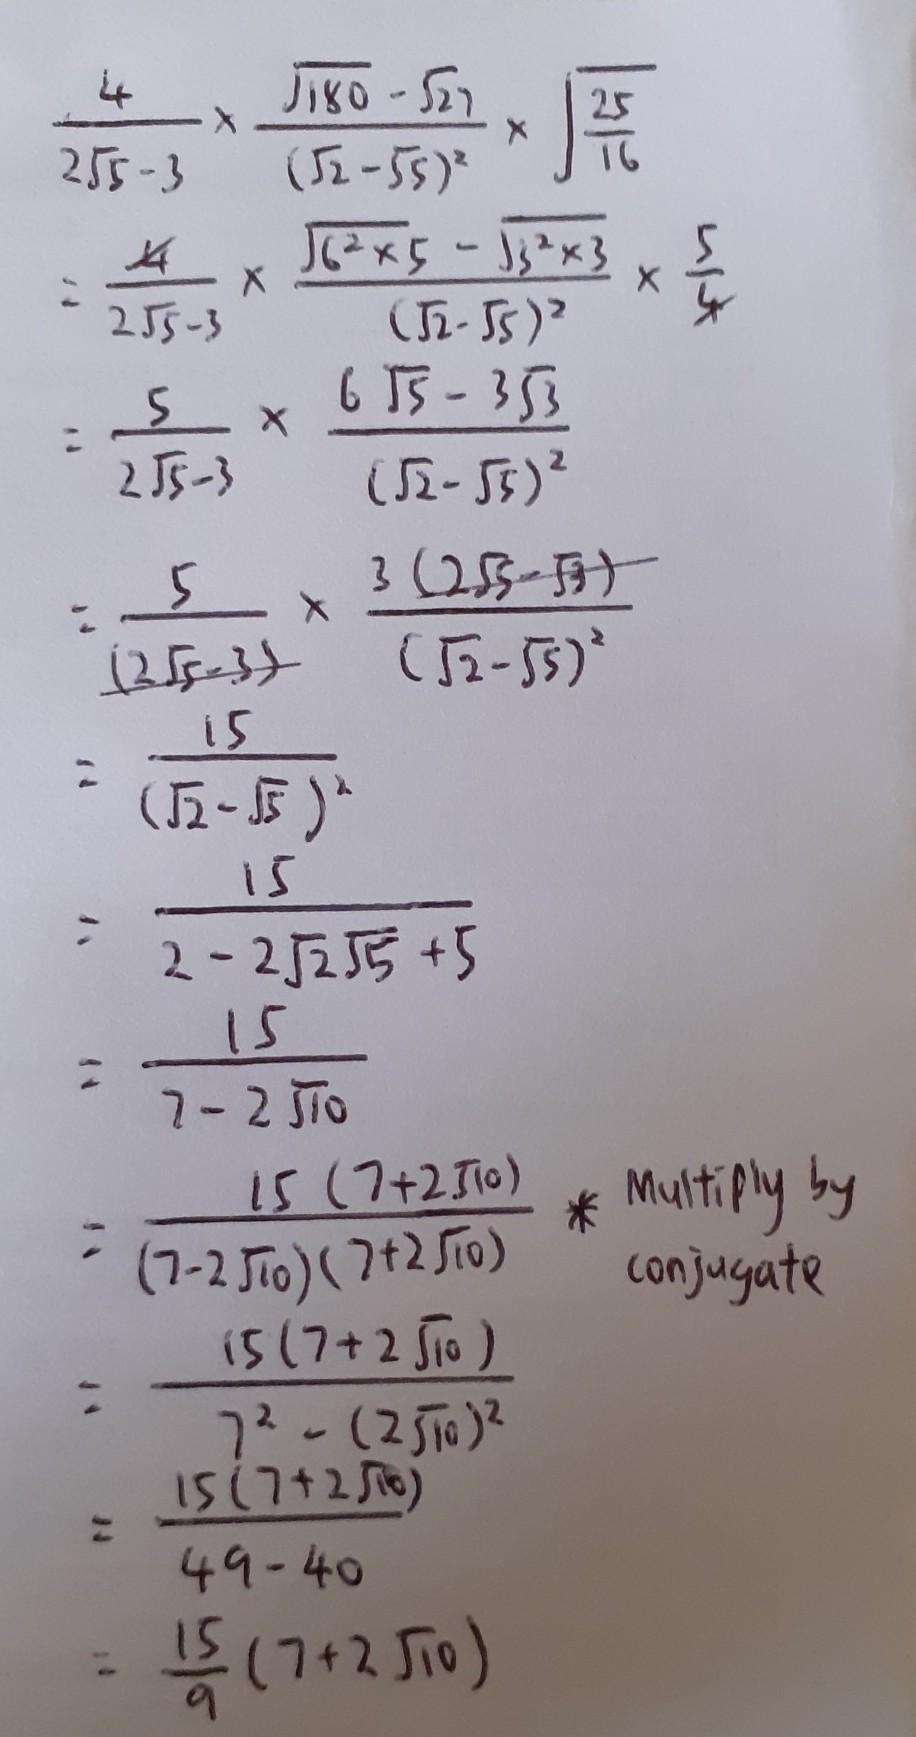 4/(2√5-3) × (√180 - √27)/(√2-√5)² × √(25/16)
= 4/(2√5-3) × (√(6²×5) - √(3²×3))/(√2-√5)² × 5/4
= 5/(2√5-3) × (6√5 - 3√3)/(√2-√5)²
= 5/(2√5-3) × 3(2√5-√3)/(√2-√5)²
= 15/(√2-√5)²
= 15/(2-2√2√5+5)
= 15/(7-2√10)
= 15(7+2√10)/(7-2√10)(7+2√10) * Multiply by conjugate
= 15(7+2√10)/(7²-(2√10)²)
= 15(7+2√10)/(49-40)
= 15/9 (7+2√10)